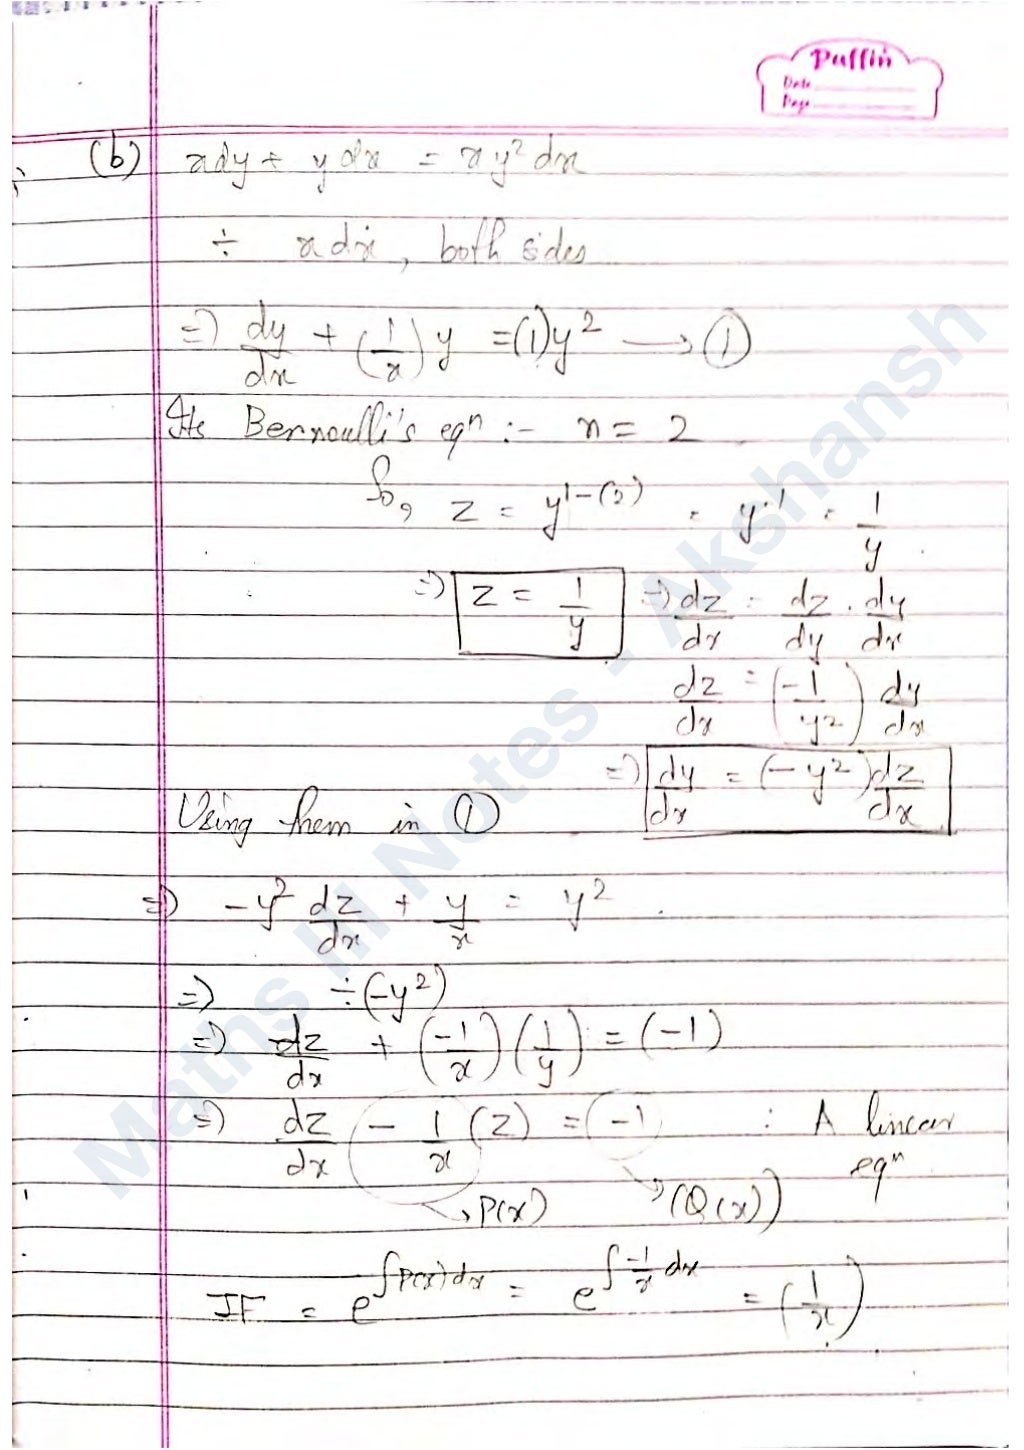 Puffin
Date
Page
(b) xdy + ydx = xy² dx
÷ x dx, both sides
=> dy/dx + (1/x) y = (1)y² → ①
Its Bernoulli's eqⁿ :- n = 2
So, z = y^(1-(2)) = y^-1 = 1/y
=> z = 1/y => dz/dx = dz/dy . dy/dx
dz/dx = (-1/y²) dy/dx
=> dy/dx = (-y²) dz/dx
Using them in ①
=> -y² dz/dx + y/x = y²
=> ÷(-y²)
=> dz/dx + (-1/x) (1/y) = (-1)
=> dz/dx - 1/x (z) = -1 : A linear eqⁿ
→ P(x) → (Q(x))
IF = e^∫P(x)dx = e^∫-1/x dx = (1/x)
Maths III Notes - Akshansh